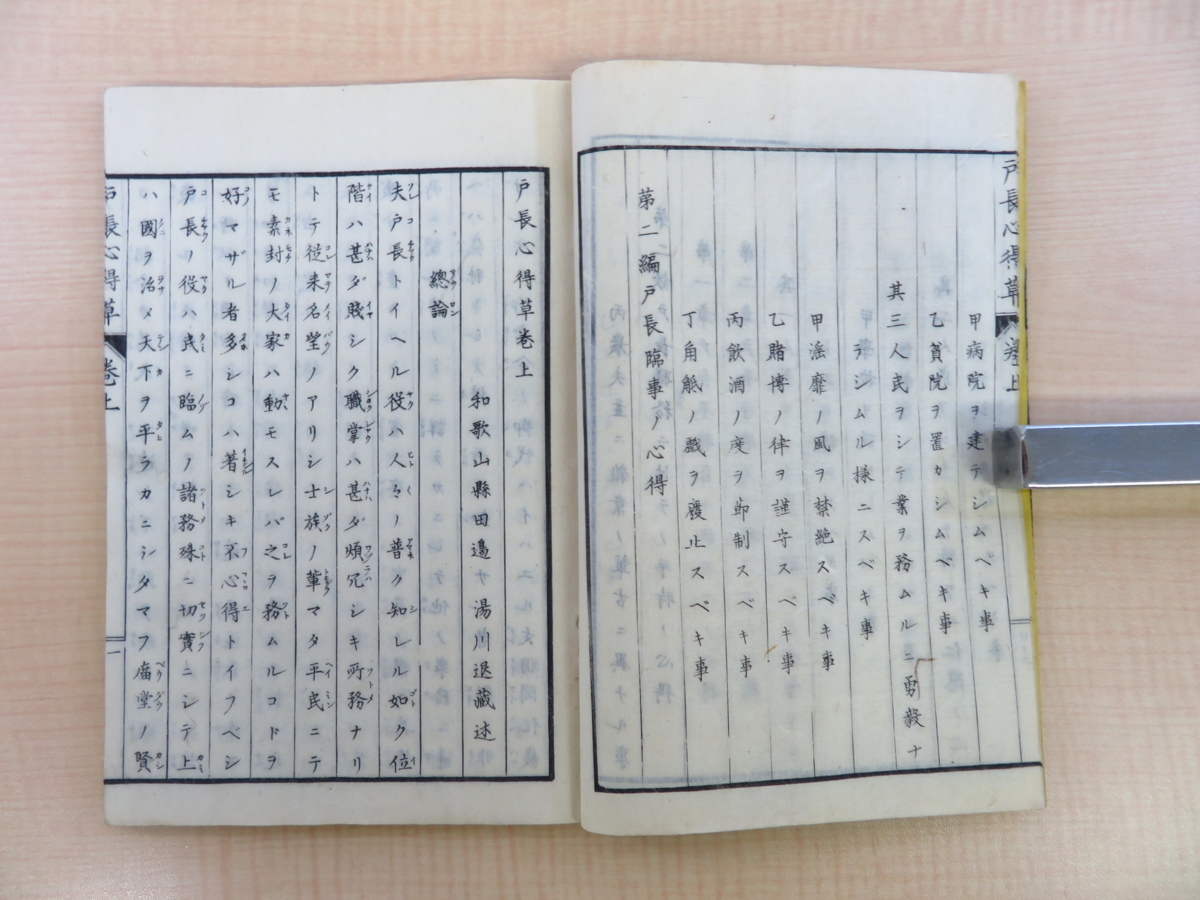 戸長心得草 卷上
甲病院ヲ建テシムベキ事
乙貧院ヲ置カシムベキ事
其三人民ヲシテ業ヲ務ムルニ勇毅ナ
ラシムル様ニスベキ事
甲淫靡ノ風ヲ禁絶スベキ事
乙賭博ノ律ヲ謹守スベキ事
丙飲酒ノ度ヲ節制スベキ事
丁角觝ノ戲ヲ廢止スベキ事
第二編戸長臨事ノ心得
戸長心得草卷上
和歌山縣田邉 湯川退藏述
總論
夫戸長トイヘル役ハ人々ノ普ク知レル如ク位
階ハ甚ダ賤シク職掌ハ甚ダ煩冗シキ所務ナリ
トテ從来名望ノアリシ士族ノ輩マタ平民ニテ
モ素封ノ大家ハ動モスレバ之ヲ務ムルコドヲ
好マザル者多シコハ著シキ不心得トイフベシ
戸長ノ役ハ民ニ臨ムノ諸務殊ニ切實ニシテ上
ハ國ヲ治メ天下ヲ平ラカニシタマフ廟堂ノ賢
戸長心得草 卷上 一